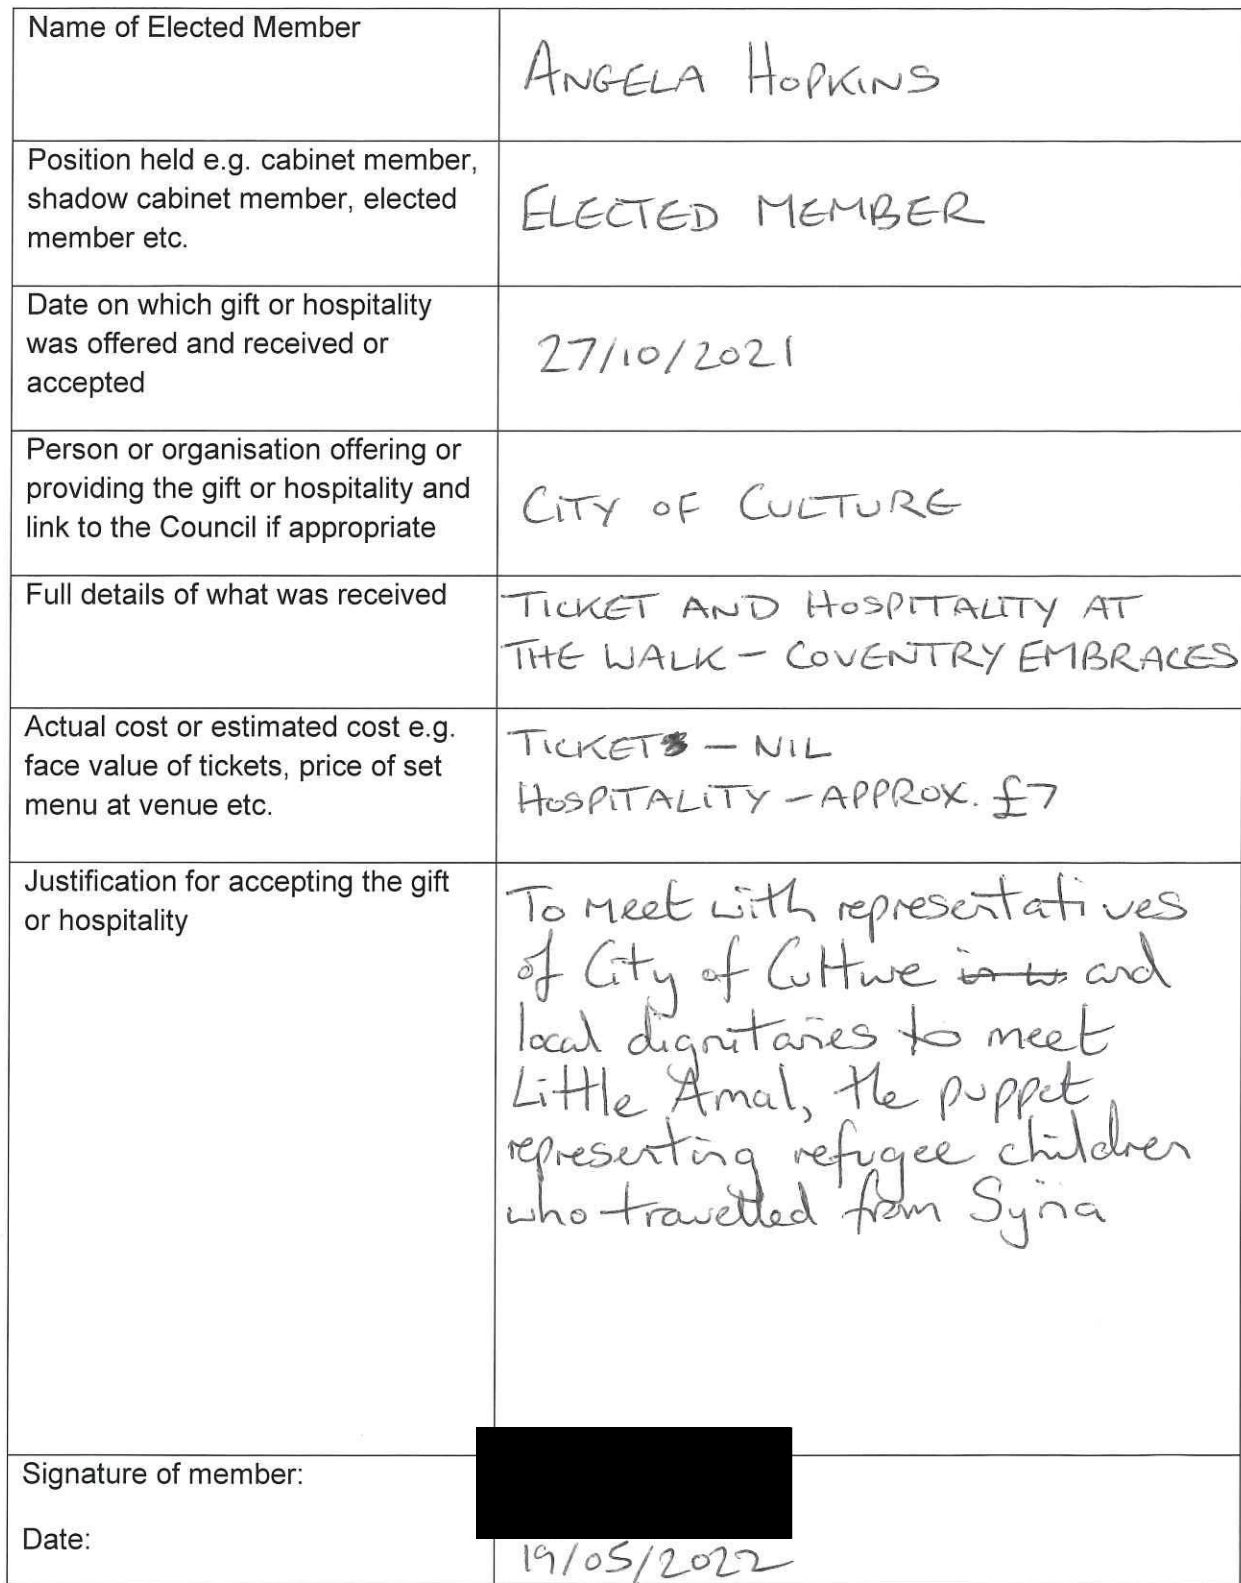 Name of Elected Member
ANGELA HOPKINS
Position held e.g. cabinet member,
shadow cabinet member, elected
member etc.
ELECTED MEMBER
Date on which gift or hospitality
was offered and received or
accepted
27/10/2021
Person or organisation offering or
providing the gift or hospitality and
link to the Council if appropriate
CITY OF CULTURE
Full details of what was received
TICKET AND HOSPITALITY AT
THE WALK - COVENTRY EMBRACES
Actual cost or estimated cost e.g.
face value of tickets, price of set
menu at venue etc.
TICKET - NIL
HOSPITALITY - APPROX. £7
Justification for accepting the gift
or hospitality
To meet with representatives
of City of Culture and
local dignitaries to meet
Little Amal, the puppet
representing refugee children
who travelled from Syria
Signature of member:
Date:
19/05/2022